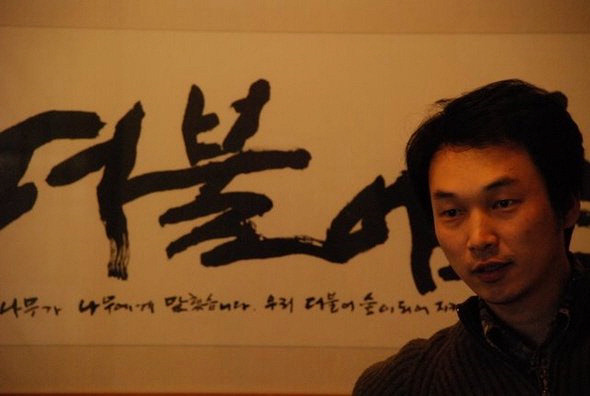 더불어
나무가 나무에게 말했습니다. 우리 더불어 숲이되어